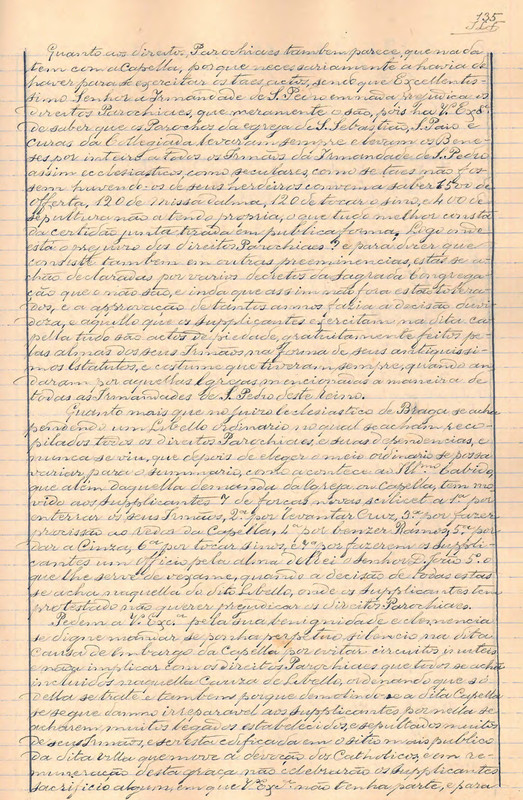 135
Quanto aos direitos Parochiaes tambem parece, que nada
tem com a Capella, porque necessariamente a havia de
haver para se exercitar os taes actos, sendo que Excellentis-
simo Senhor a Irmandade de S. Pedro em nada prejudica os
direitos Parochiaes, que meramente o são, pois ha Vª Exª
de saber que os Parochos da egreja de S. Sebastião, S. Paio e
curas da Collegiada levaram sempre e levam os Bene-
ses por inteiro a todos os Irmãos da Irmandade de S. Pedro
assim ecclesiasticos, como seculares, como se taes não fos-
sem havendo-os de seus herdeiros convem a saber 1500 de
offerta, 120 de missa d'alma, 120 de tocar o sino, e 400 de
sepultura não a tendo propria, o que tudo melhor consta
da certidão junta tirada em publica forma. Logo onde
está o prejuizo dos direitos Parochiaes? e para dizer que
consiste tambem em outras preeminencias, estas se a-
chão declaradas por varios decretos da Sagrada Congrega-
ção que o não são, e inda que assim não fora estão tolera-
dos, e a approvação de tantos annos fazia a decisão duvi-
doza, e aquillo que os supplicantes exercitam na dita ca-
pella tudo são actos de piedade, gratuitamente feitos pe-
las almas dos seus Irmãos na forma de seus antiquissi-
mos Estatutos, e costume que tiveram sempre, quando an-
daram por aquellas Igrejas mencionadas a maneira de
todas as Irmandades de S. Pedro deste reino.
Quanto mais que no juizo ecclesiastico de Braga se acha
pendendo um Libello ordinario no qual se acham reco-
pilados todos os direitos Parochiaes, e suas dependencias, e
nunca se viu, que depois de eleger o meio ordinario se possa
variar para o summario, como acontece ao Illmo Cabido,
que alem daquella demanda da Igreja ou Capella, tem mo-
vido aos supplicantes 7 de forças novas scilicet a 1ª por
enterrar os seus Irmãos, 2ª por levantar Cruz, 3ª por fazer
procissão ao redor da Capella, 4ª por benzer Ramos, 5ª por
dar a Cinza, 6ª por tocar sinos, e 7ª por fazerem os suppli-
cantes um Officio pela alma de Rei o Senhor D. João 5º. o
que lhe serve de vexame, quando a decisão de todas estas
se acha naquella do dito Libello, onde os supplicantes tem
protestado não querer prejudicar os direitos Parochiaes.
Pedem a Vª Excª pela sua benignidade e clemencia
se digne mandar se ponha perpetuo silencio na dita
Causa de Embargo da Capella por evitar circuitos inuteis
e não implicar com os direitos Parochiaes que todos se acham
incluidos naquella Cauza de Libello, ordenando que só
della se trate e tambem porque demolindo-se a dita Capella
se segue damno irreparavel aos supplicantes por nella se
acharem muitos legados estabelecidos, e sepultados muitos
de seus Irmãos, e ser esta edificada em o sitio mais publico
da dita villa que move á devoção dos Catholicos, e em re-
muneração desta graça não celebrarão os supplicantes
sacrificio algum, em que Vª Excª não tenha parte, e para